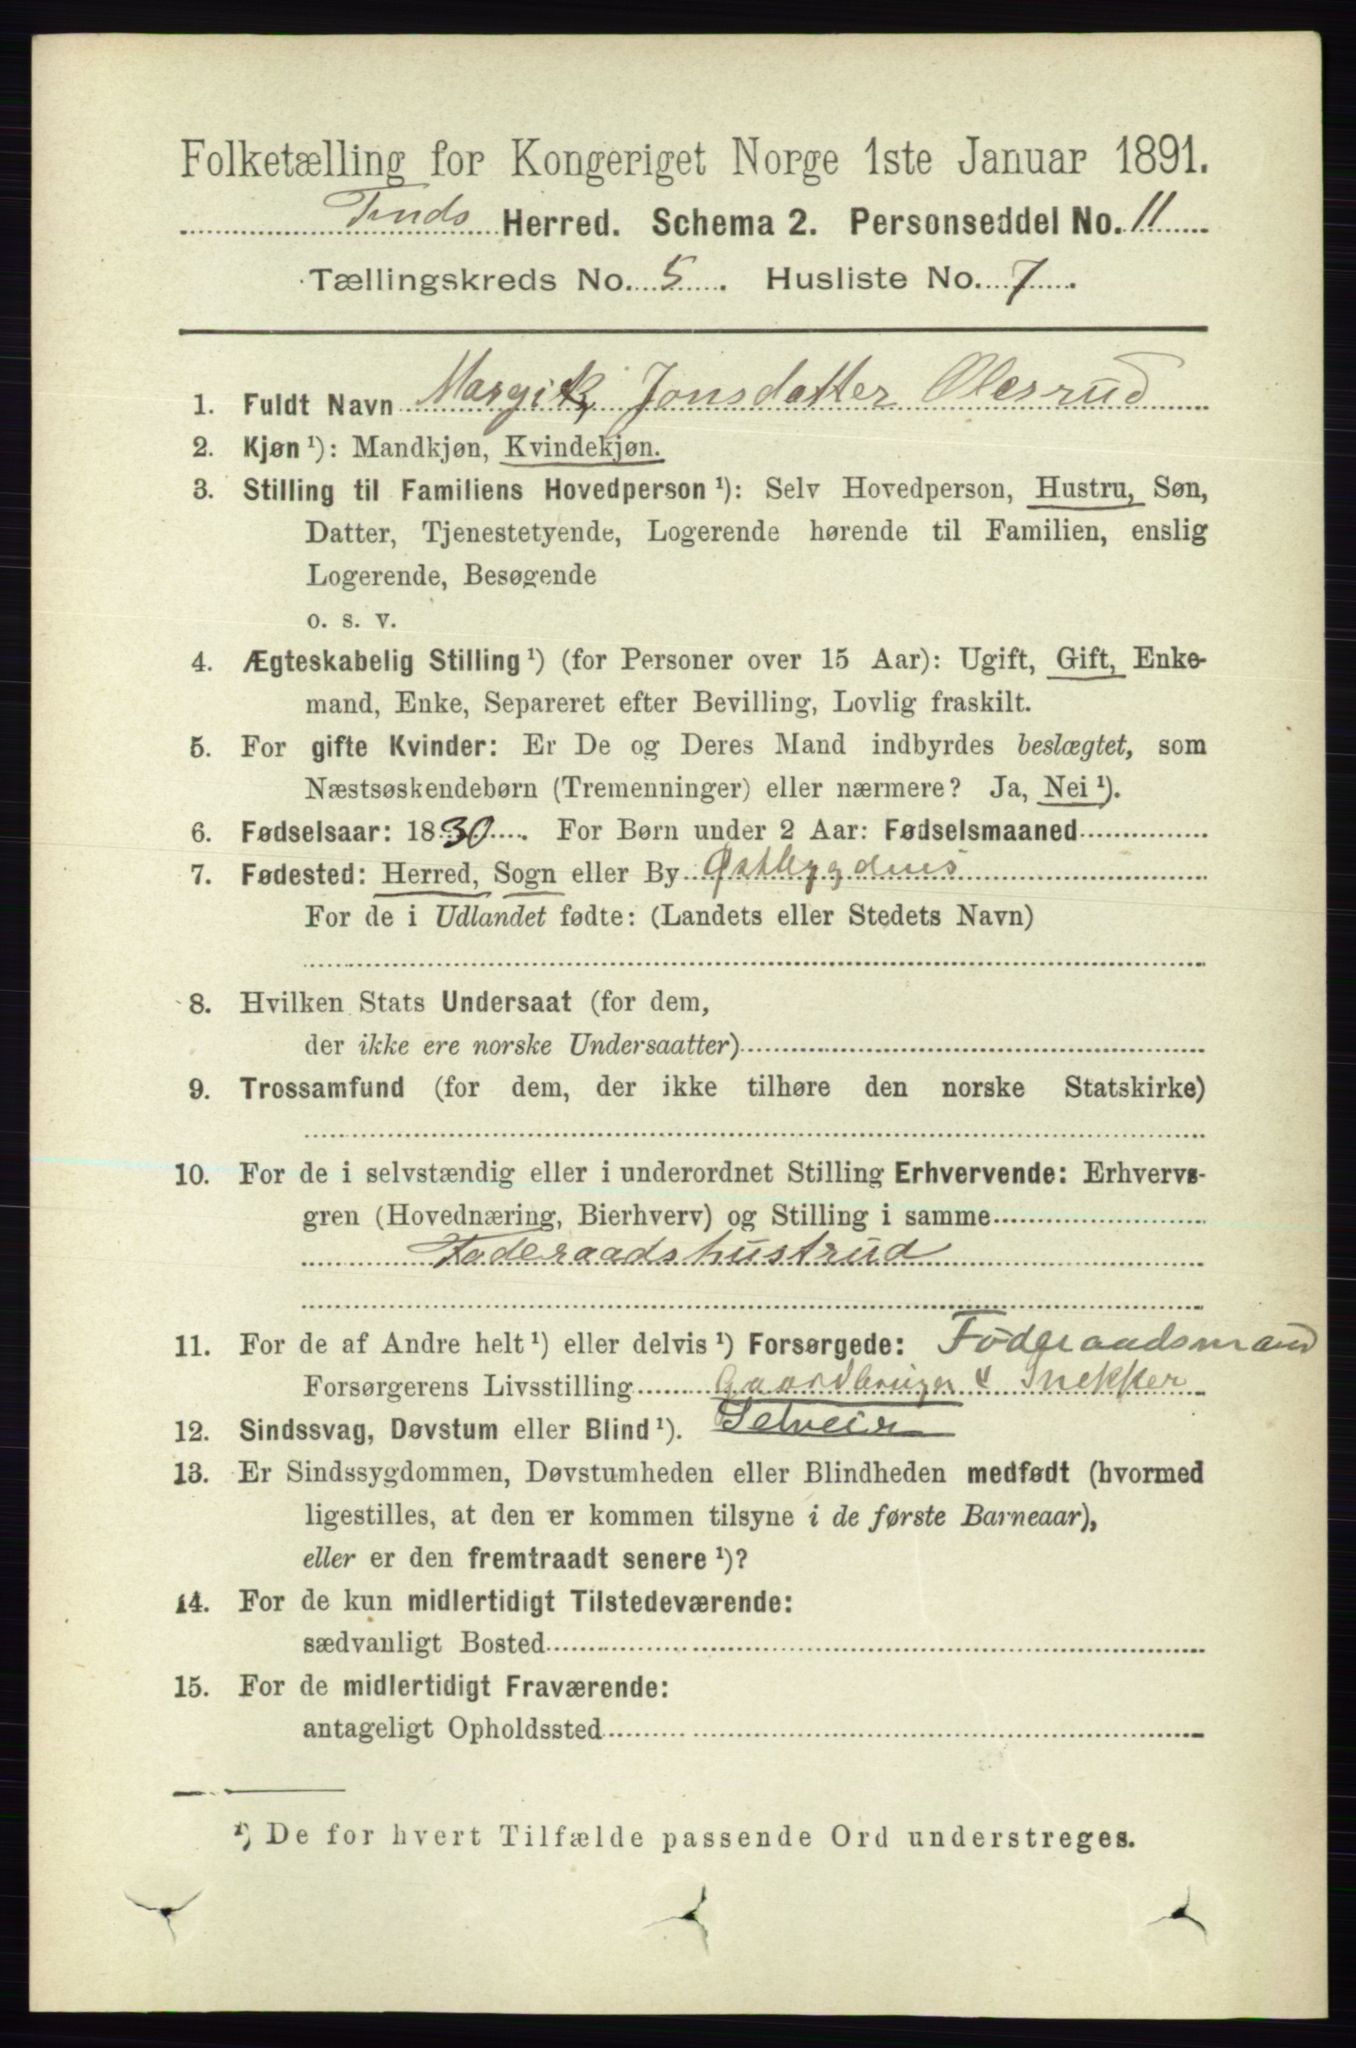 Folketælling for Kongeriget Norge 1ste Januar 1891.
Tinds Herred. Schema 2. Personseddel No. 11
Tællingskreds No. 5. Husliste No. 7.
1. Fuldt Navn Margit Jonsdatter Olesrud
2. Kjøn ¹): Mandkjøn, Kvindekjøn.
3. Stilling til Familiens Hovedperson ¹): Selv Hovedperson, Hustru, Søn,
Datter, Tjenestetyende, Logerende hørende til Familien, enslig
Logerende, Besøgende
o. s. v.
4. Ægteskabelig Stilling ¹) (for Personer over 15 Aar): Ugift, Gift, Enke-
mand, Enke, Separeret efter Bevilling, Lovlig fraskilt.
5. For gifte Kvinder: Er De og Deres Mand indbyrdes beslægtet, som
Næstsøskendebørn (Tremenninger) eller nærmere? Ja, Nei ¹).
6. Fødselsaar: 1830. For Børn under 2 Aar: Fødselsmaaned
7. Fødested: Herred, Sogn eller By Østbygdens
For de i Udlandet fødte: (Landets eller Stedets Navn)
8. Hvilken Stats Undersaat (for dem,
der ikke ere norske Undersaatter)
9. Trossamfund (for dem, der ikke tilhøre den norske Statskirke)
10. For de i selvstændig eller i underordnet Stilling Erhvervende: Erhvervs-
gren (Hovednæring, Bierhverv) og Stilling i samme
Føderaadshustrud
11. For de af Andre helt ¹) eller delvis ¹) Forsørgede: Føderaadsmand
Forsørgerens Livsstilling Gaardbruger & Snekker
12. Sindssvag, Døvstum eller Blind ¹). Selveier
13. Er Sindssygdommen, Døvstumheden eller Blindheden medfødt (hvormed
ligestilles, at den er kommen tilsyne i de første Barneaar),
eller er den fremtraadt senere ¹)?
14. For de kun midlertidigt Tilstedeværende:
sædvanligt Bosted
15. For de midlertidigt Fraværende:
antageligt Opholdssted
¹) De for hvert Tilfælde passende Ord understreges.